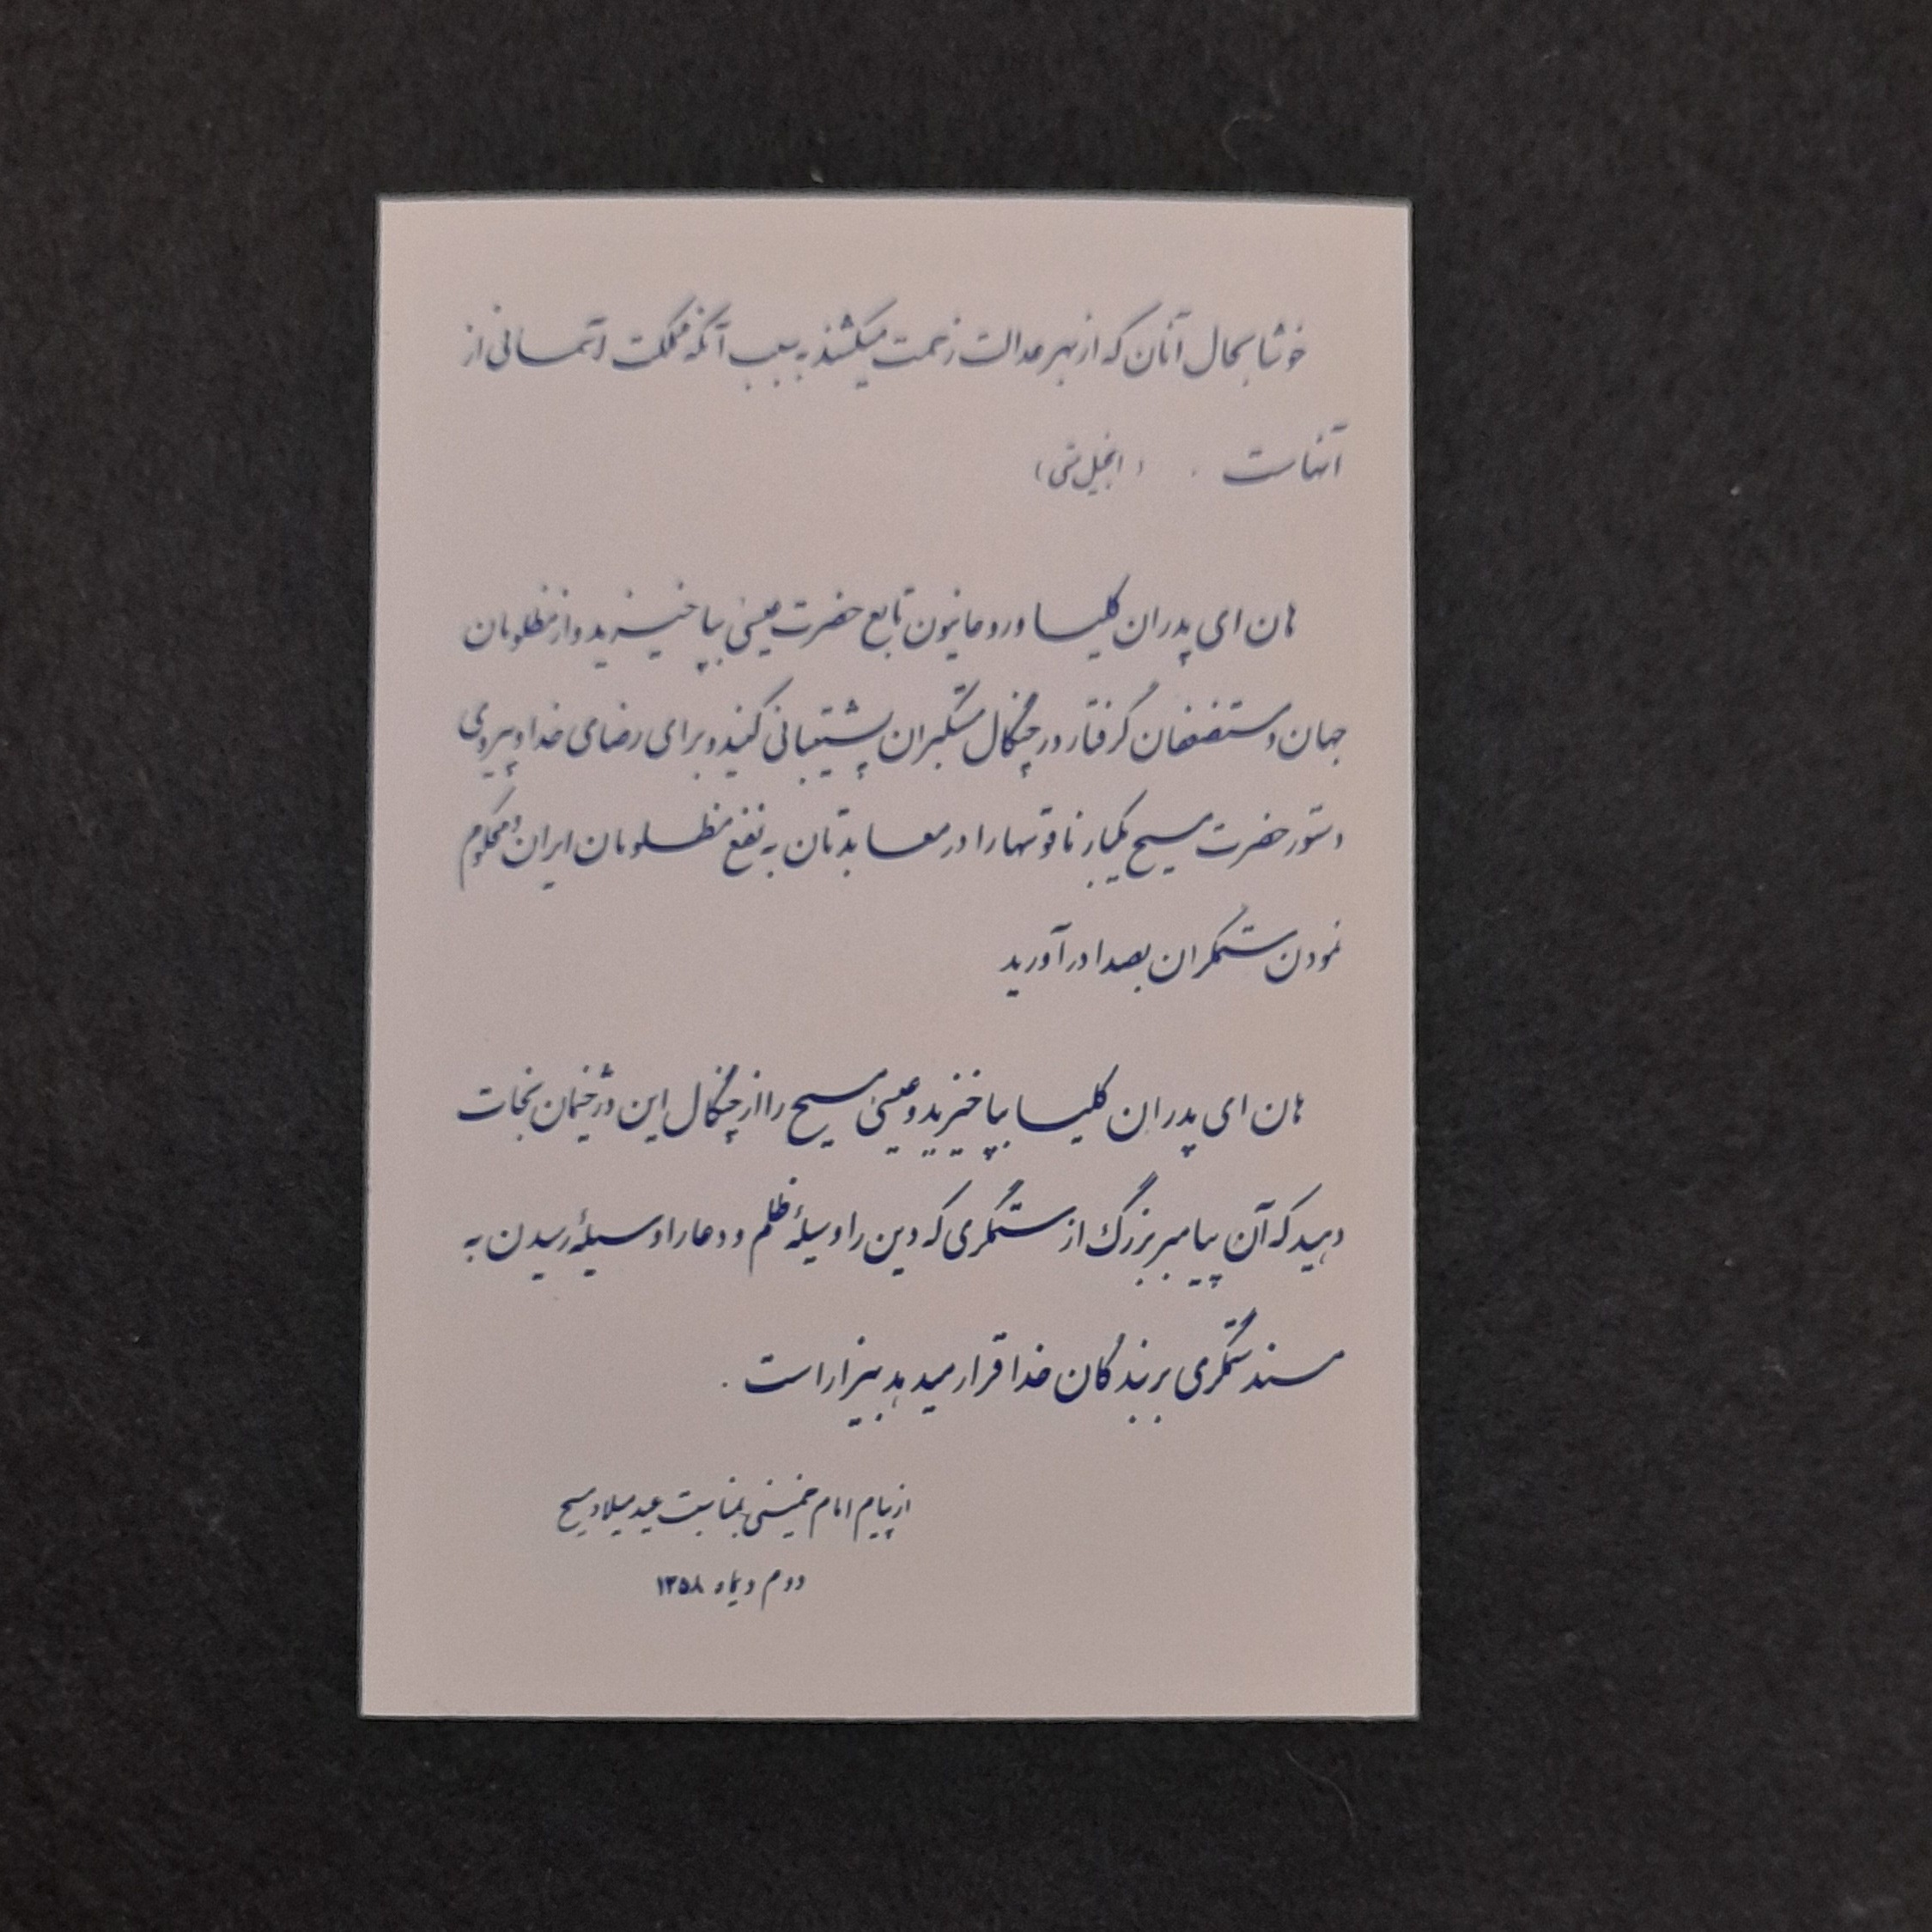 خوشا بحال آنان که از بهر عدالت زحمت میکشند به سبب آنکه مملکت آسمانی از
آنهاست . (انجیل متی)
هان ای پدران کلیسا و روحانیون تابع حضرت عیسی بپا خیزید و از مظلومان
جهان و مستضعفان گرفتار در چنگال مستکبران پشتیبانی کنید و برای رضای خدا و پیروی
دستور حضرت مسیح یکبار ناقوسها را در معابدتان به نفع مظلومان ایران و محکوم
نمودن ستمگران بصدا درآورید
هان ای پدران کلیسا بپا خیزید و عیسی مسیح را از چنگال این دژخیمان نجات
دهید که آن پیامبر بزرگ از ستمگری که دین را وسیلهٔ ظلم و دعا را وسیلهٔ رسیدن به
مسند ستمگری بر بندگان خدا قرار میدهد بیزار است .
از پیام امام خمینی بمناسبت عید میلاد مسیح
دوم دیماه ۱۳۵۸